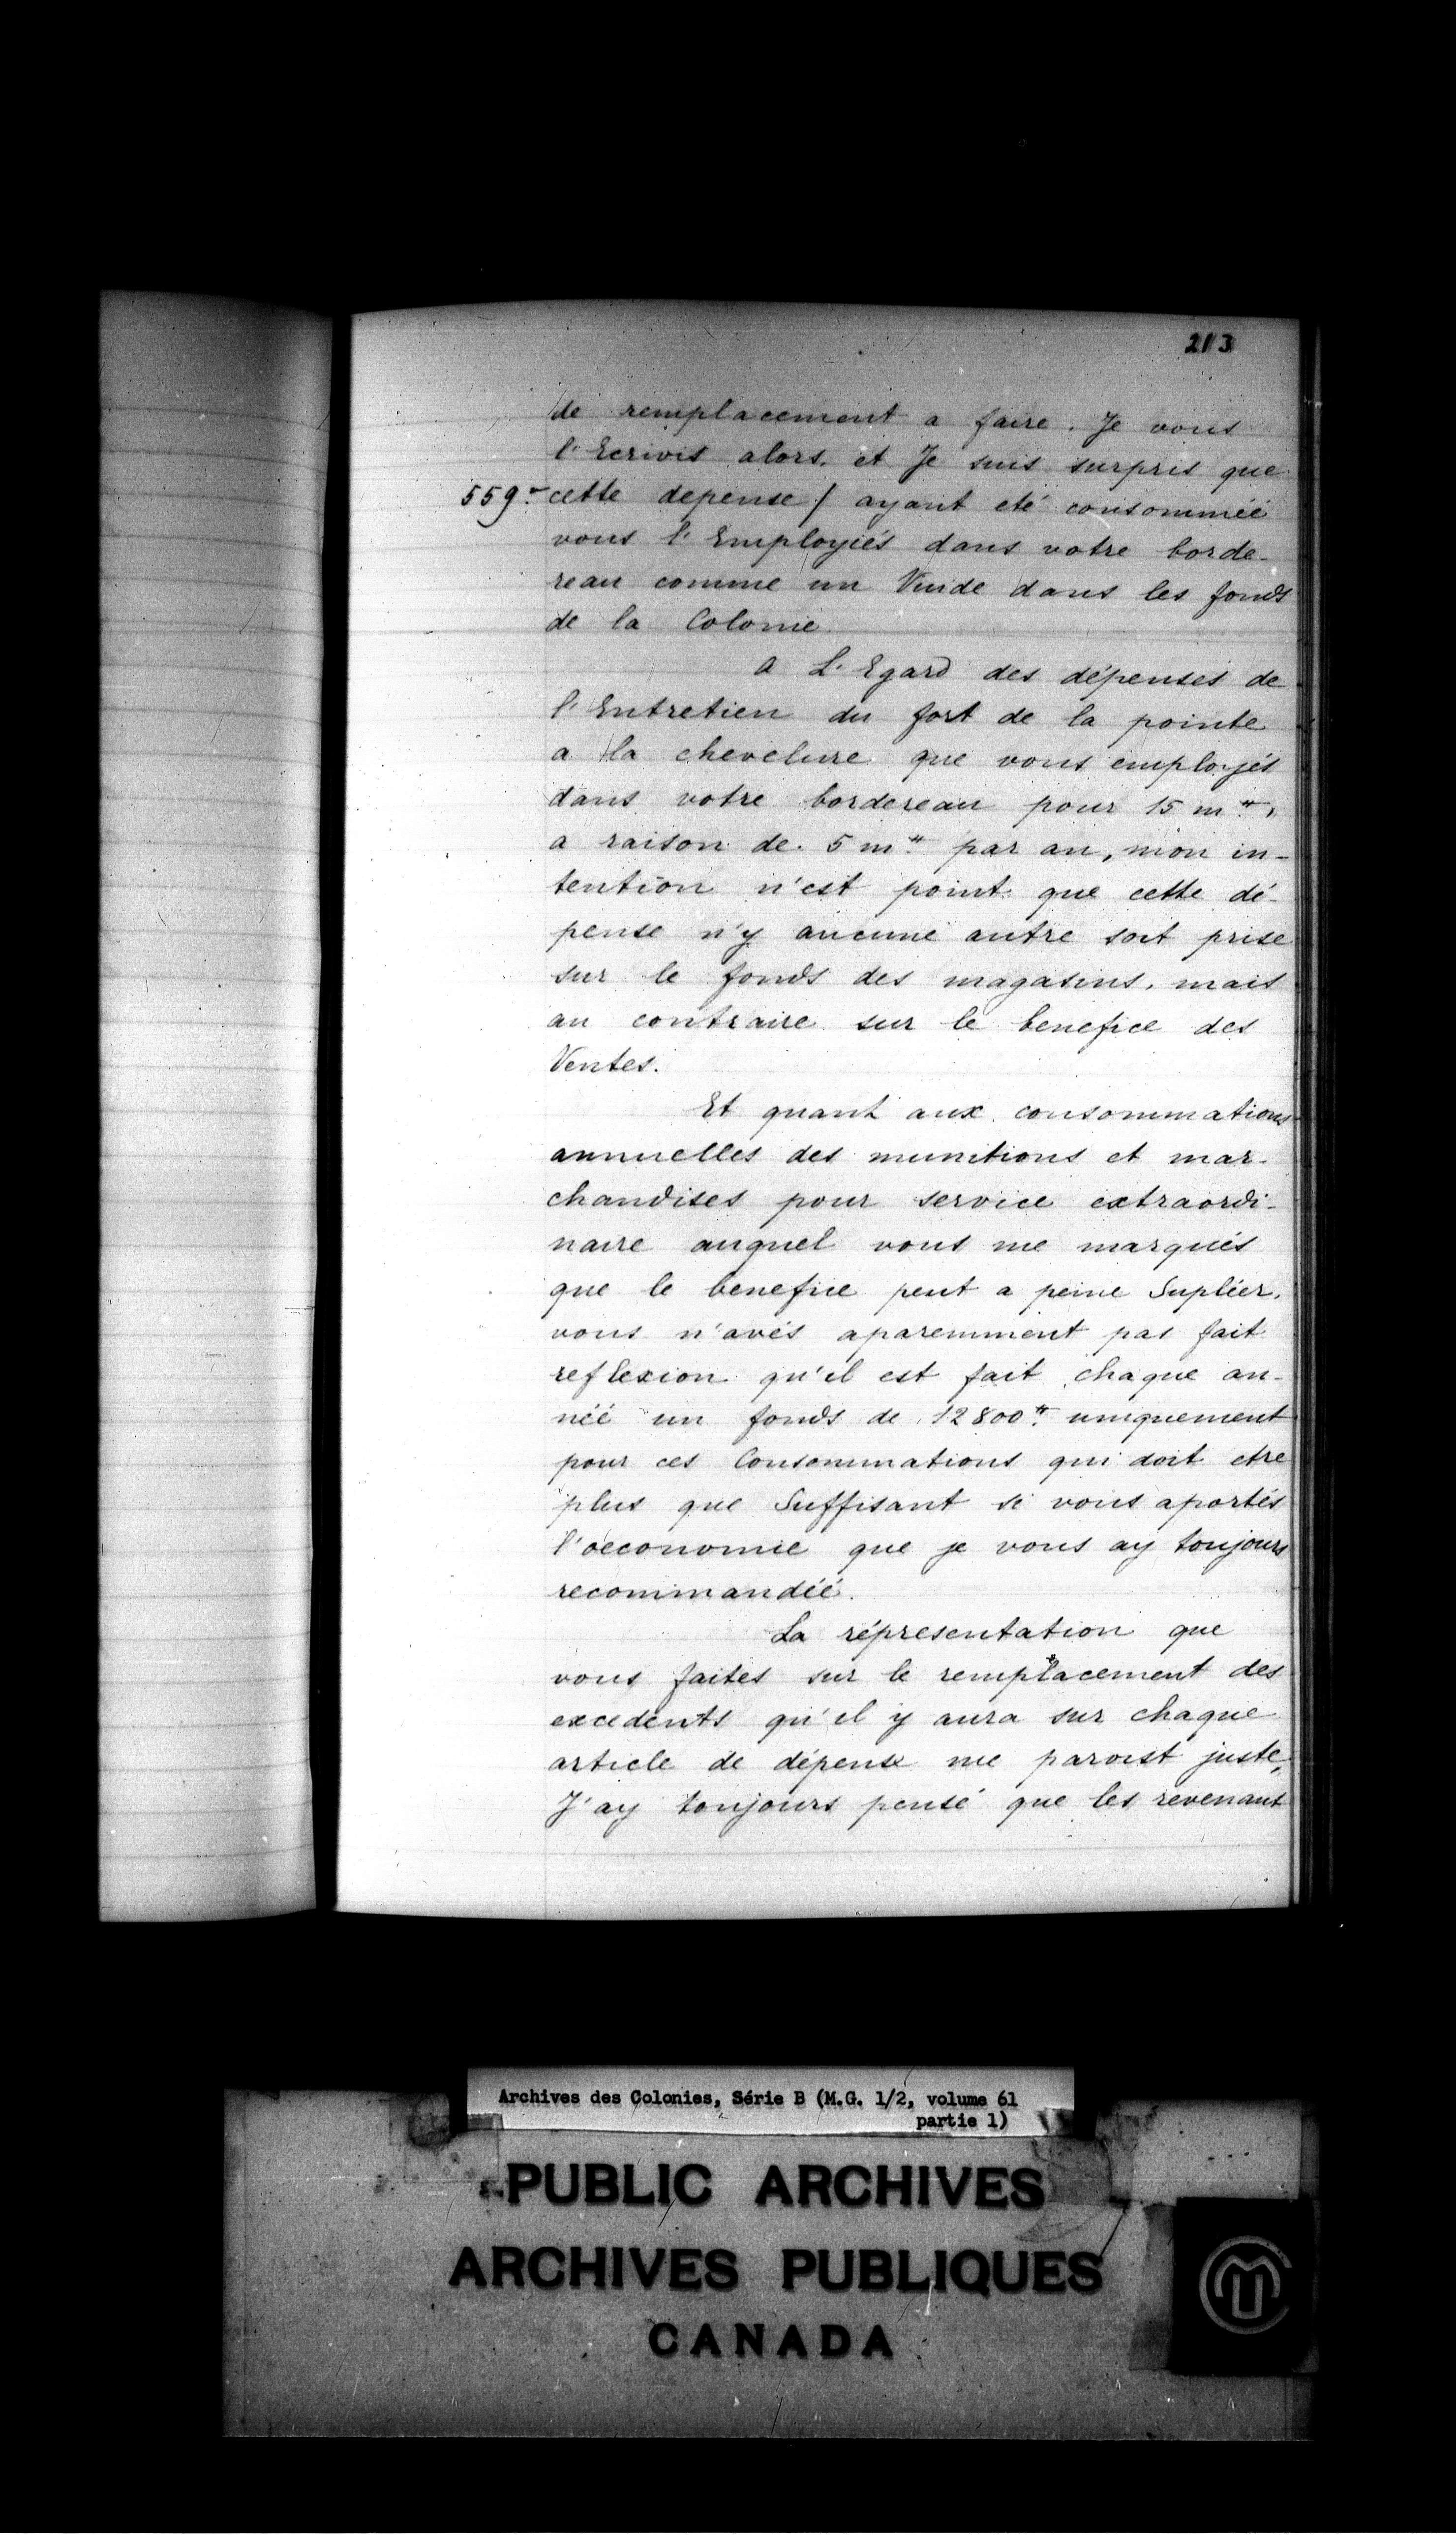 213
de remplacement a faire. Je vous
l'Ecrivis alors. et Je suis surpris que
559 - cette depense / ayant eté consomméé
vous l'Employiés dans votre borde-
reau comme un Vuide dans les fonds
de la Colonie.
a L'Egard des dépenses de
l'Entretien du fort de la pointe
a la chevelure que vous employés
dans votre bordereau pour 15 m ₶,
a raison de 5 m ₶ par an, mon in-
tention n'est point que cette dé-
pense n'y aucune autre soit prise
sur le fonds des magasins, mais
au contraire sur le benefice des
Ventes.
Et quant aux consommations
annuelles des munitions et mar-
chandises pour service extraordi-
naire auquel vous me marqués
que le benefice peut a peine Supléer.
vous n'avés aparemment pas fait
reflexion qu'il est fait chaque an-
néé un fonds de 12800 ₶ uniquement
pour ces Consommations qui doit etre
plus que Suffisant si vous aportés
l'oeconomie que je vous ay toujours
recommandéé.
La répresentation que
vous faites sur le remplacement des
excedents qu'il y aura sur chaque
article de dépense me paroist juste,
J'ay toujours pensé que les revenant
Archives des Colonies, Série B (M.G. 1/2, volume 61
partie 1)
PUBLIC ARCHIVES
ARCHIVES PUBLIQUES
CANADA